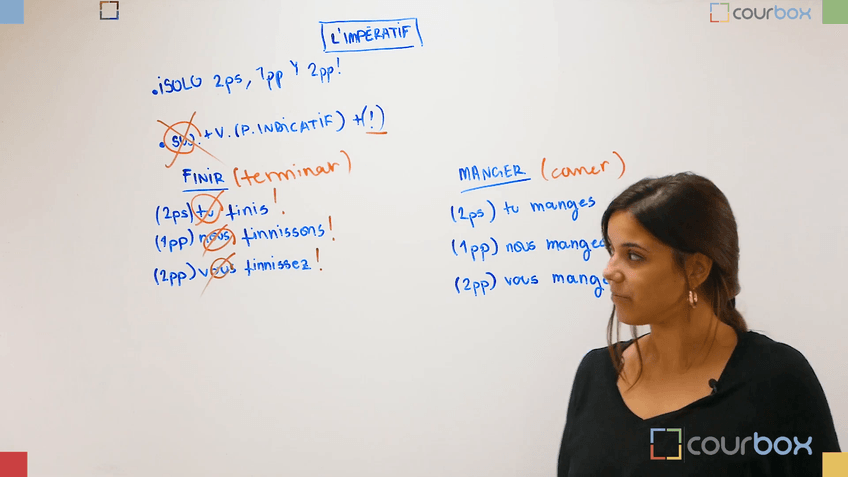 courbox
L'IMPÉRATIF
• ¡SOLO 2ps, 1pp y 2pp!
• SUJ. + V. (P. INDICATIF) + (!)
FINIR (terminar)
(2ps) tu finis!
(1pp) nous finnissons!
(2pp) vous finnissez!
MANGER (comer)
(2ps) tu manges
(1pp) nous
(2pp) vous
courbox